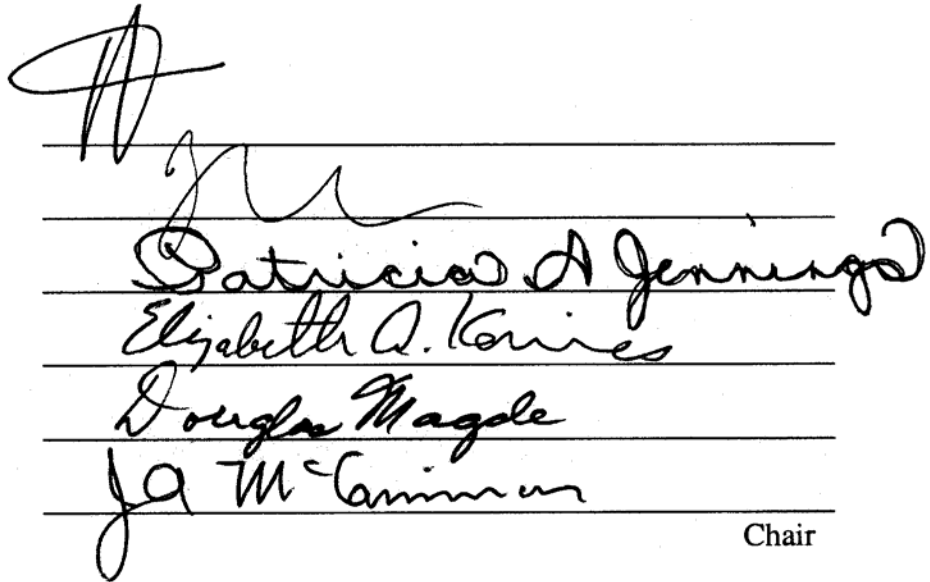 Patricia A Jennings
Elizabeth A. Komives
Douglas Magde
JA McCammon
Chair